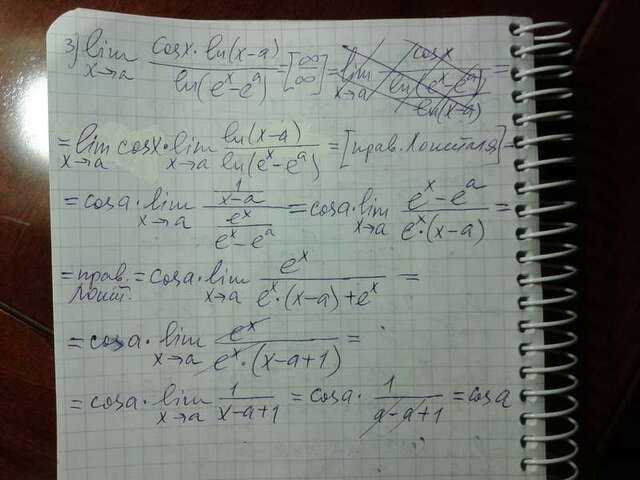 3) lim x→a cosx·ln(x-a) / ln(eˣ-eᵃ) = [∞/∞] = lim x→a cosx / ln(eˣ-eᵃ) / ln(x-a) =
= lim x→a cosx · lim x→a ln(x-a) / ln(eˣ-eᵃ) = [прав. Лопиталя] =
= cosa · lim x→a (1/(x-a)) / (eˣ/(eˣ-eᵃ)) = cosa · lim x→a (eˣ-eᵃ) / (eˣ·(x-a)) =
= прав. Лопит. = cosa · lim x→a eˣ / (eˣ·(x-a)+eˣ) =
= cosa · lim x→a eˣ / (eˣ·(x-a+1)) =
= cosa · lim x→a 1/(x-a+1) = cosa · 1/(a-a+1) = cosa